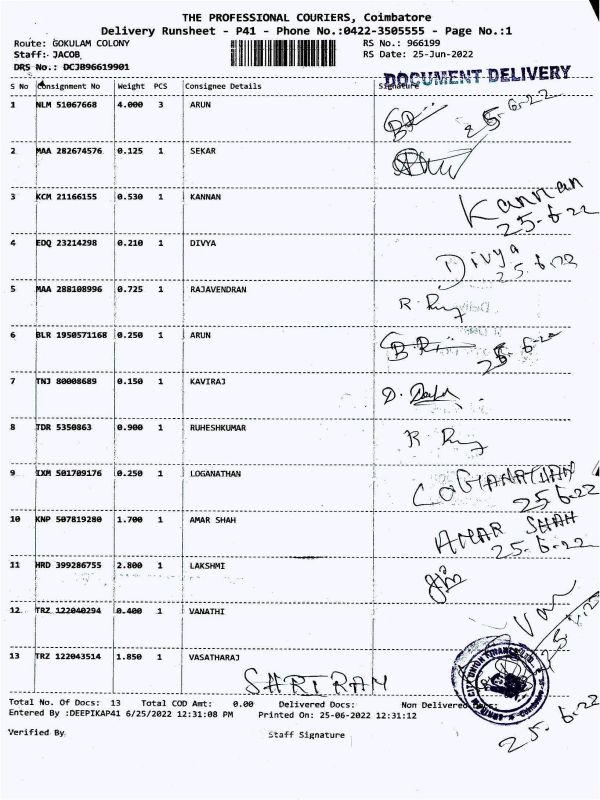 THE PROFESSIONAL COURIERS, Coimbatore
Delivery Runsheet - P41 - Phone No.:0422-3505555 - Page No.:1
Route: GOKULAM COLONY RS No.: 966199
Staff: JACOB RS Date: 25-Jun-2022
DRS No.: DCJB96619901
DOCUMENT DELIVERY
S No Consignment No Weight PCS Consignee Details Signature
1 NLM 51067668 4.000 3 ARUN 25-6-22
2 MAA 282674576 0.125 1 SEKAR
3 KCM 21166155 0.530 1 KANNAN Kannan
25-6-22
4 EDQ 23214298 0.210 1 DIVYA Divya
25.6.22
5 MAA 288108996 0.725 1 RAJAVENDRAN
6 BLR 1950571168 0.250 1 ARUN 25-6-22
7 TNJ 80008689 0.150 1 KAVIRAJ
8 TDR 5350863 0.900 1 RUHESHKUMAR
9 IXM 501709176 0.250 1 LOGANATHAN LOGANATHAN
25 6-22
10 KNP 507819280 1.700 1 AMAR SHAH AMAR SHAH
25-6-22
11 HRD 399286755 2.800 1 LAKSHMI
12 TRZ 122040294 0.400 1 VANATHI Van
25.6.22
13 TRZ 122043514 1.850 1 VASATHARAJ
SHRIRAM CITY UNION FINANCE LTD.
SHRIRAM
Total No. Of Docs: 13 Total COD Amt: 0.00 Delivered Docs: Non Delivered Docs:
Entered By :DEEPIKAP41 6/25/2022 12:31:08 PM Printed On: 25-06-2022 12:31:12
25-6-22
Verified By Staff Signature